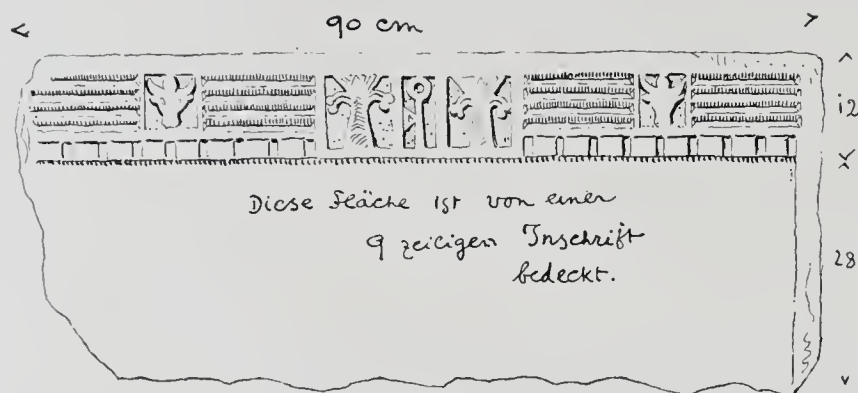 90 cm
12
Diese Fläche ist von einer
9 zeiligen Inschrift
bedeckt.
28